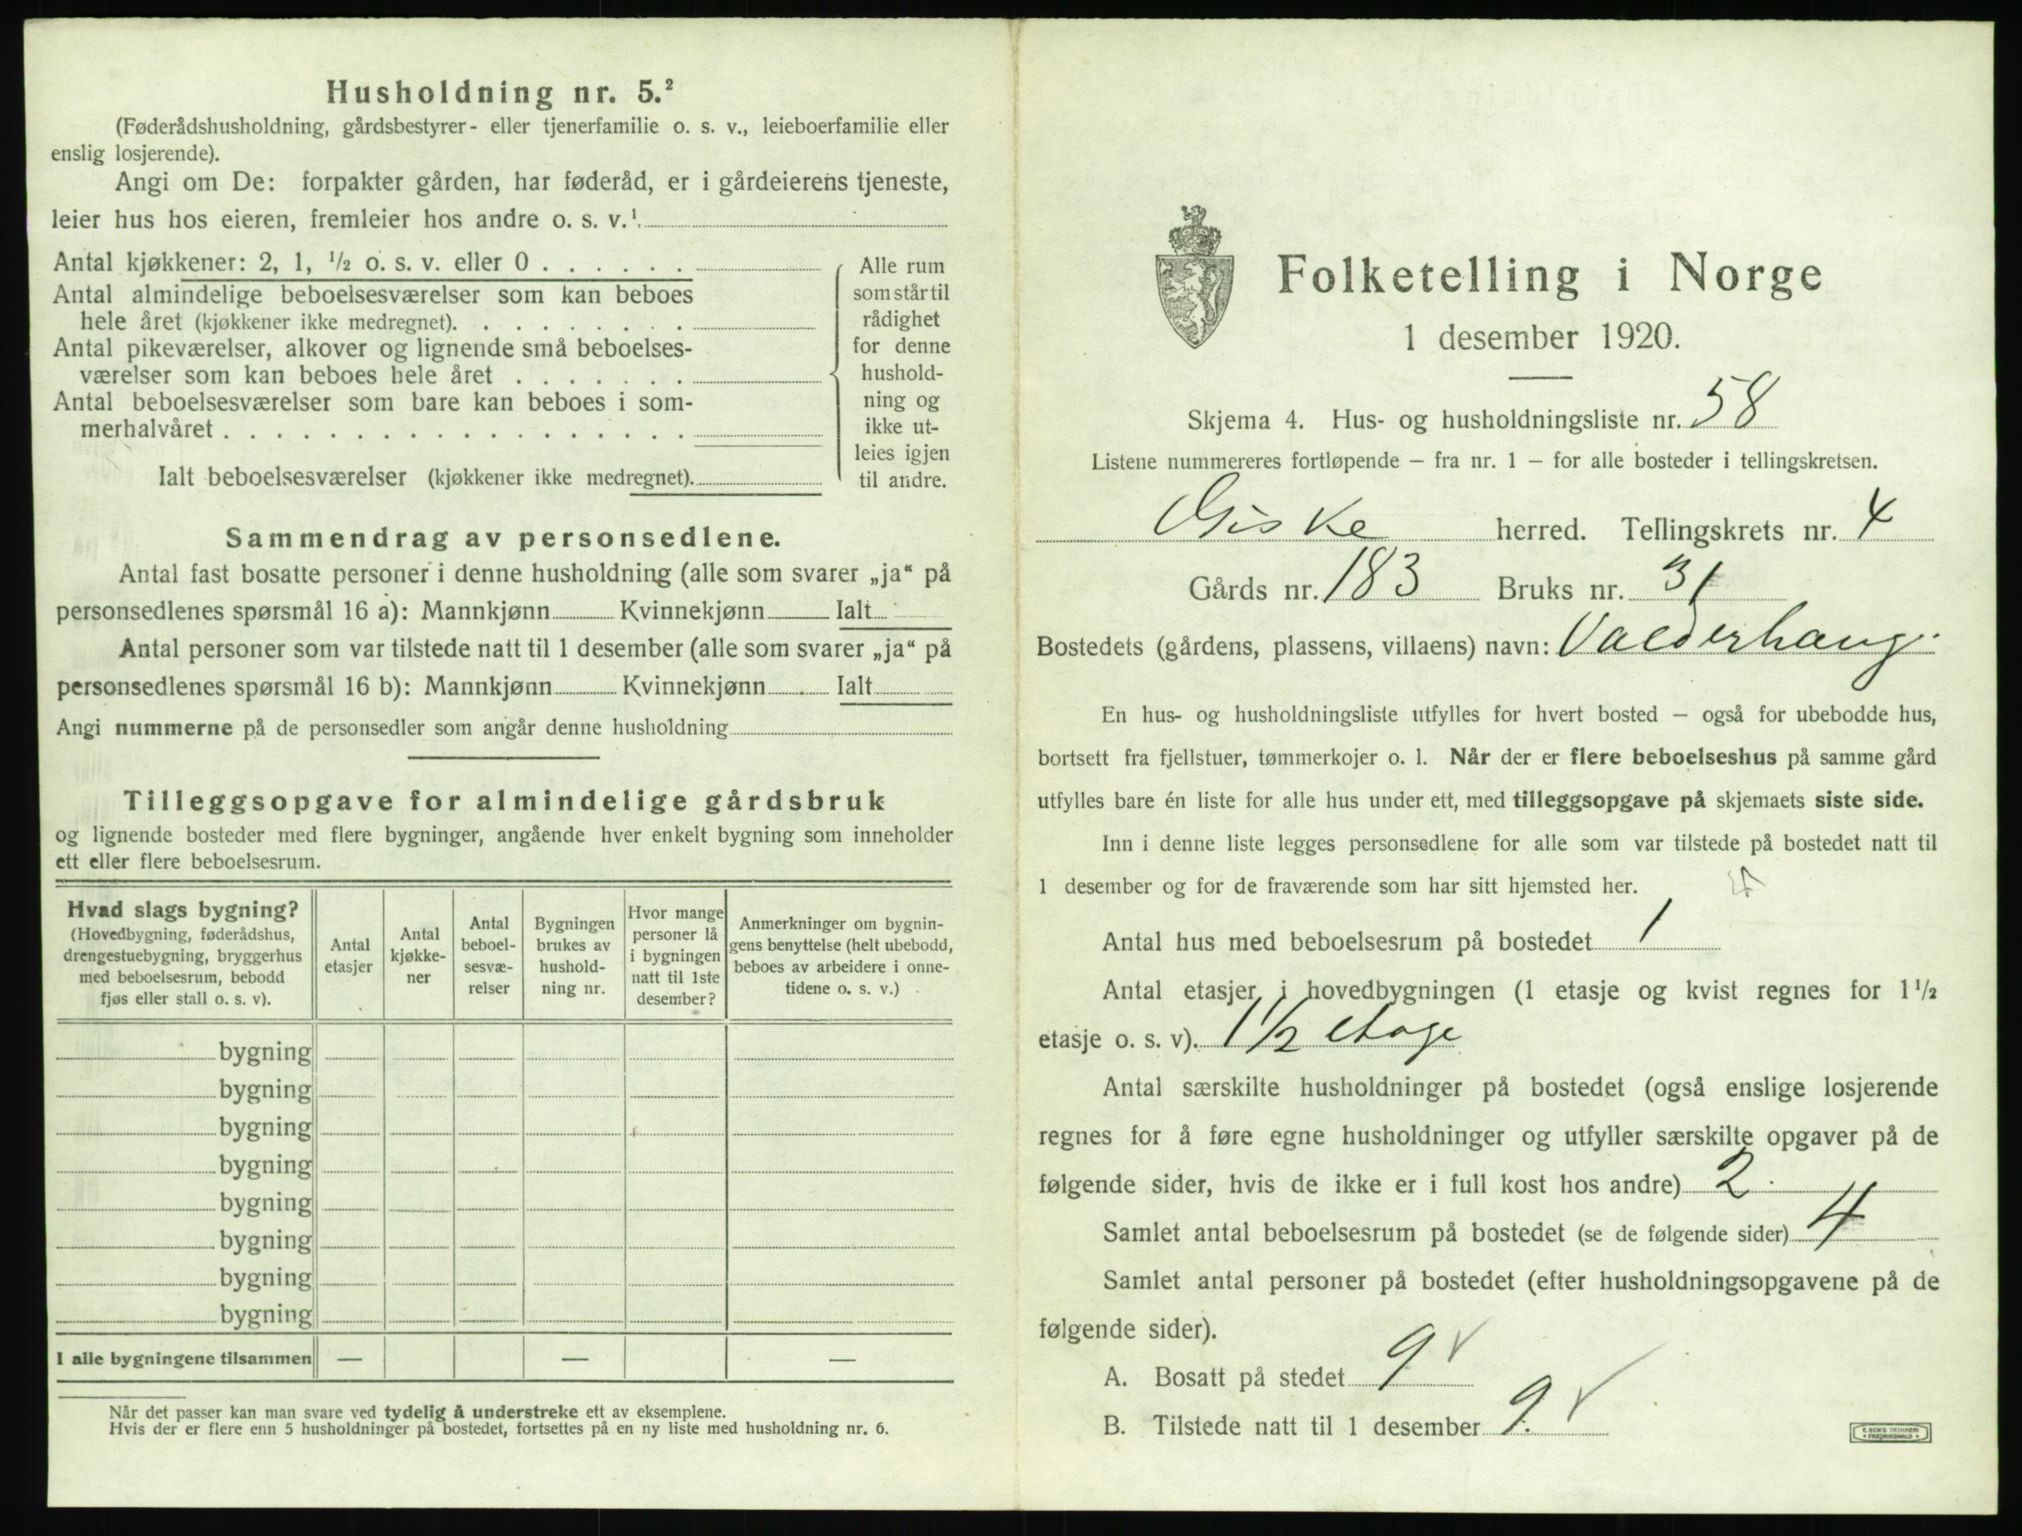 Husholdning nr. 5.²
(Føderådshusholdning, gårdsbestyrer- eller tjenerfamilie o. s. v., leieboerfamilie eller
enslig losjerende).
Angi om De: forpakter gården, har føderåd, er i gårdeierens tjeneste,
leier hus hos eieren, fremleier hos andre o. s. v.¹
Antal kjøkkener: 2, 1, ½ o. s. v. eller 0 . . . . . .
Antal almindelige beboelsesværelser som kan beboes
hele året (kjøkkener ikke medregnet). . . . . . . . .
Antal pikeværelser, alkover og lignende små beboelses-
værelser som kan beboes hele året . . . . . . .
Antal beboelsesværelser som bare kan beboes i som-
merhalvåret . . . . . . . . . . . . . . . . . .
Ialt beboelsesværelser (kjøkkener ikke medregnet).
Alle rum
som står til
rådighet
for denne
hushold-
ning og
ikke ut-
leies igjen
til andre.
Sammendrag av personsedlene.
Antal fast bosatte personer i denne husholdning (alle som svarer „ja“ på
personsedlenes spørsmål 16 a): Mannkjønn Kvinnekjønn Ialt
Antal personer som var tilstede natt til 1 desember (alle som svarer „ja“ på
personsedlenes spørsmål 16 b): Mannkjønn Kvinnekjønn Ialt
Angi nummerne på de personsedler som angår denne husholdning
Tilleggsopgave for almindelige gårdsbruk
og lignende bosteder med flere bygninger, angående hver enkelt bygning som inneholder
ett eller flere beboelsesrum.
Hvad slags bygning?
(Hovedbygning, føderådshus,
drengestuebygning, bryggerhus
med beboelsesrum, bebodd
fjøs eller stall o. s. v).
Antal
etasjer
Antal
kjøkke-
ner
Antal
beboel-
sesvæ-
relser
Bygningen
brukes av
hushold-
ning nr.
Hvor mange
personer lå
i bygningen
natt til 1ste
desember?
Anmerkninger om bygnin-
gens benyttelse (helt ubebodd,
beboes av arbeidere i onne-
tidene o. s. v.)
bygning
bygning
bygning
bygning
bygning
bygning
bygning
bygning
I alle bygningene tilsammen — — —
Når det passer kan man svare ved tydelig å understreke ett av eksemplene.
Hvis der er flere enn 5 husholdninger på bostedet, fortsettes på en ny liste med husholdning nr. 6.
Folketelling i Norge
1 desember 1920.
Skjema 4. Hus- og husholdningsliste nr. 58
Listene nummereres fortløpende — fra nr. 1 — for alle bosteder i tellingskretsen.
Giske herred. Tellingskrets nr. 4
Gårds nr. 183 Bruks nr. 31
Bostedets (gårdens, plassens, villaens) navn: Valderhaug
En hus- og husholdningsliste utfylles for hvert bosted — også for ubebodde hus,
bortsett fra fjellstuer, tømmerkojer o. l. Når der er flere beboelseshus på samme gård
utfylles bare én liste for alle hus under ett, med tilleggsopgave på skjemaets siste side.
Inn i denne liste legges personsedlene for alle som var tilstede på bostedet natt til
1 desember og for de fraværende som har sitt hjemsted her.
Antal hus med beboelsesrum på bostedet 1
Antal etasjer i hovedbygningen (1 etasje og kvist regnes for 1½
etasje o. s. v). 1½ etage
Antal særskilte husholdninger på bostedet (også enslige losjerende
regnes for å føre egne husholdninger og utfyller særskilte opgaver på de
følgende sider, hvis de ikke er i full kost hos andre) 2.
Samlet antal beboelsesrum på bostedet (se de følgende sider) 4
Samlet antal personer på bostedet (efter husholdningsopgavene på de
følgende sider).
A. Bosatt på stedet 9 ✓
B. Tilstede natt til 1 desember 9. ✓